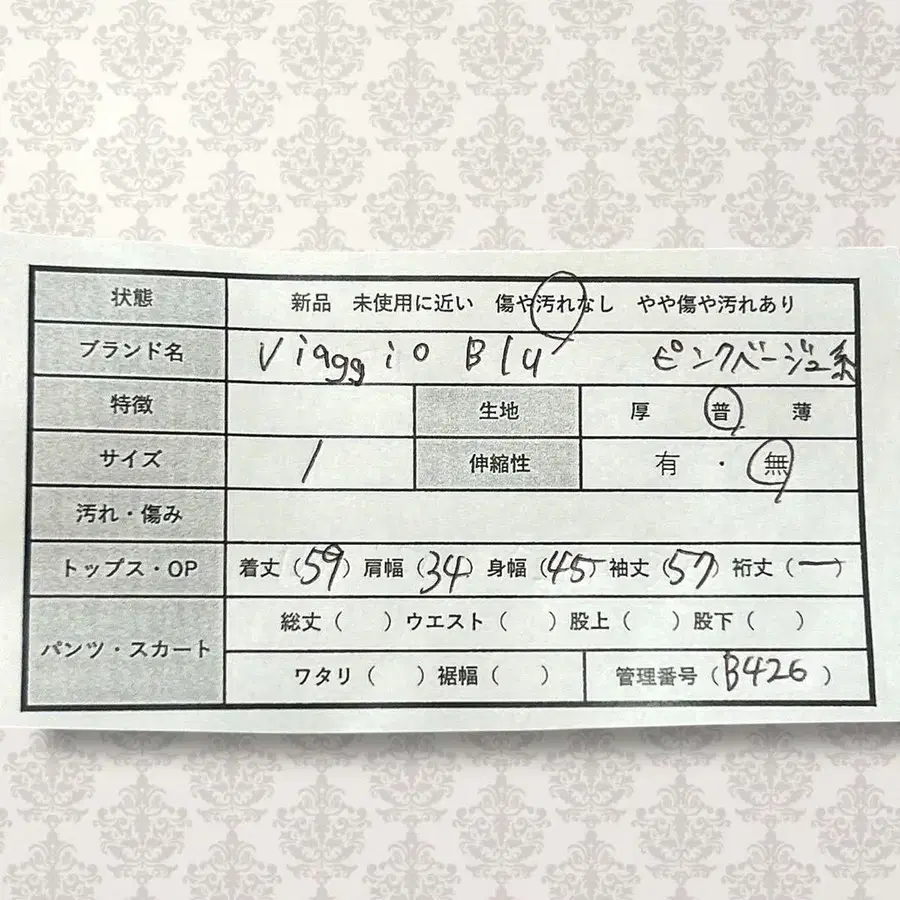 状態 新品 未使用に近い 傷や汚れなし やや傷や汚れあり
ブランド名 Viaggio Blu ピンクベージュ系
特徴 生地 厚 普 薄
サイズ 1 伸縮性 有 ・ 無
汚れ・傷み
トップス・OP 着丈(59) 肩幅(34) 身幅(45) 袖丈(57) 裄丈(ー)
パンツ・スカート 総丈( ) ウエスト( ) 股上( ) 股下( )
ワタリ( ) 裾幅( ) 管理番号(B426)